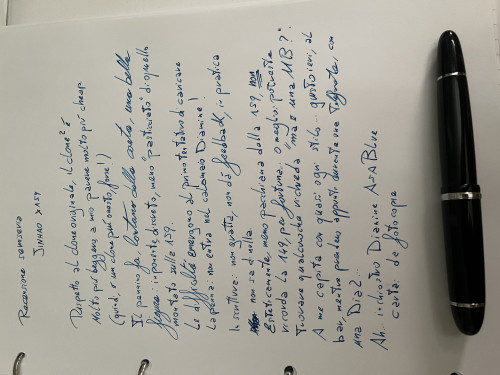 Recensione semiseria
JINHAO X159
Rispetto al clone originale, il clone² è
molto più leggera a mio parere molto più cheap
(quindi, è un clone più onesto forse!)
Il pennino fa lontano dalla carta, una bella
figura: imponente, discreto, meno "particolato" di quello
montato sulla 159.
Le difficoltà emergono al primo tentativo di caricare
la penna: non entra nel calamaio Diamine!
In scrittura: non gratta, non dà feedback, in pratica
non sa di nulla.
Esteticamente, meno pacchiana della 159, non
ricorda la 149, per fortuna. O meglio: potreste
trovare qualcuno che vi chieda "ma è una MB?".
A me capita con quasi ogni stilo... giusto ieri, al
bar, mentre prendevo appunti durante una telefonata, con
una Dia2...
Ah... inchiostro Diamine ASA Blue
carta: da fotocopia